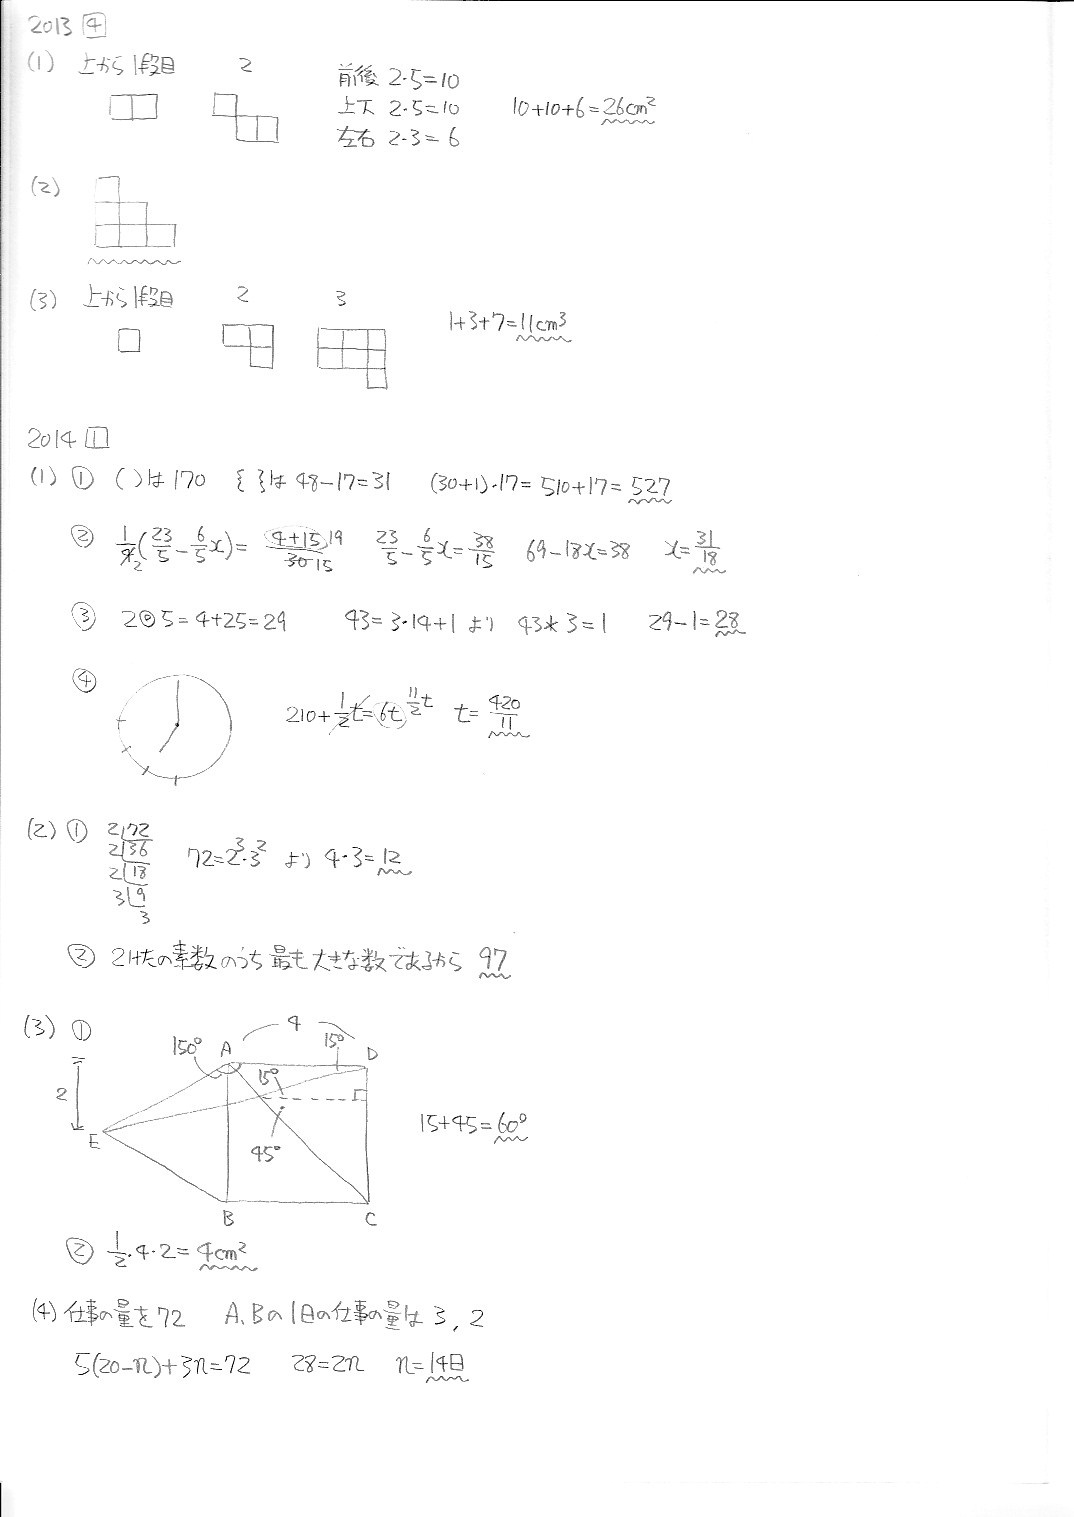 2013 4
(1) 上から1段目 2 前後 2・5=10
上下 2・5=10 10+10+6=26cm²
左右 2・3=6
(2)
(3) 上から1段目 2 3 1+3+7=11cm³
2014 1
(1) ① ( )は170 { }は48-17=31 (30+1)・17=510+17=527
② 1/42(23/5-6/5x)=4+15 19/30 15 23/5-6/5x=38/15 69-18x=38 x=31/18
③ 2◎5=4+25=29 43=3・14+1より 43*3=1 29-1=28
④ 210+1/2t=6t 11/2t t=420/11
(2) ① 2)72
2)36
2)18
3)9
3
72=2³・3² より 4・3=12
② 2けたの素数のうち最も大きな数であるから 97
(3) ① 4
150° A 15° D
2 15°
E 45° 15+45=60°
B C
② 1/2・4・2=4cm²
(4) 仕事の量を72 A、Bの1日の仕事の量は3,2
5(20-n)+3n=72 28=2n n=14日